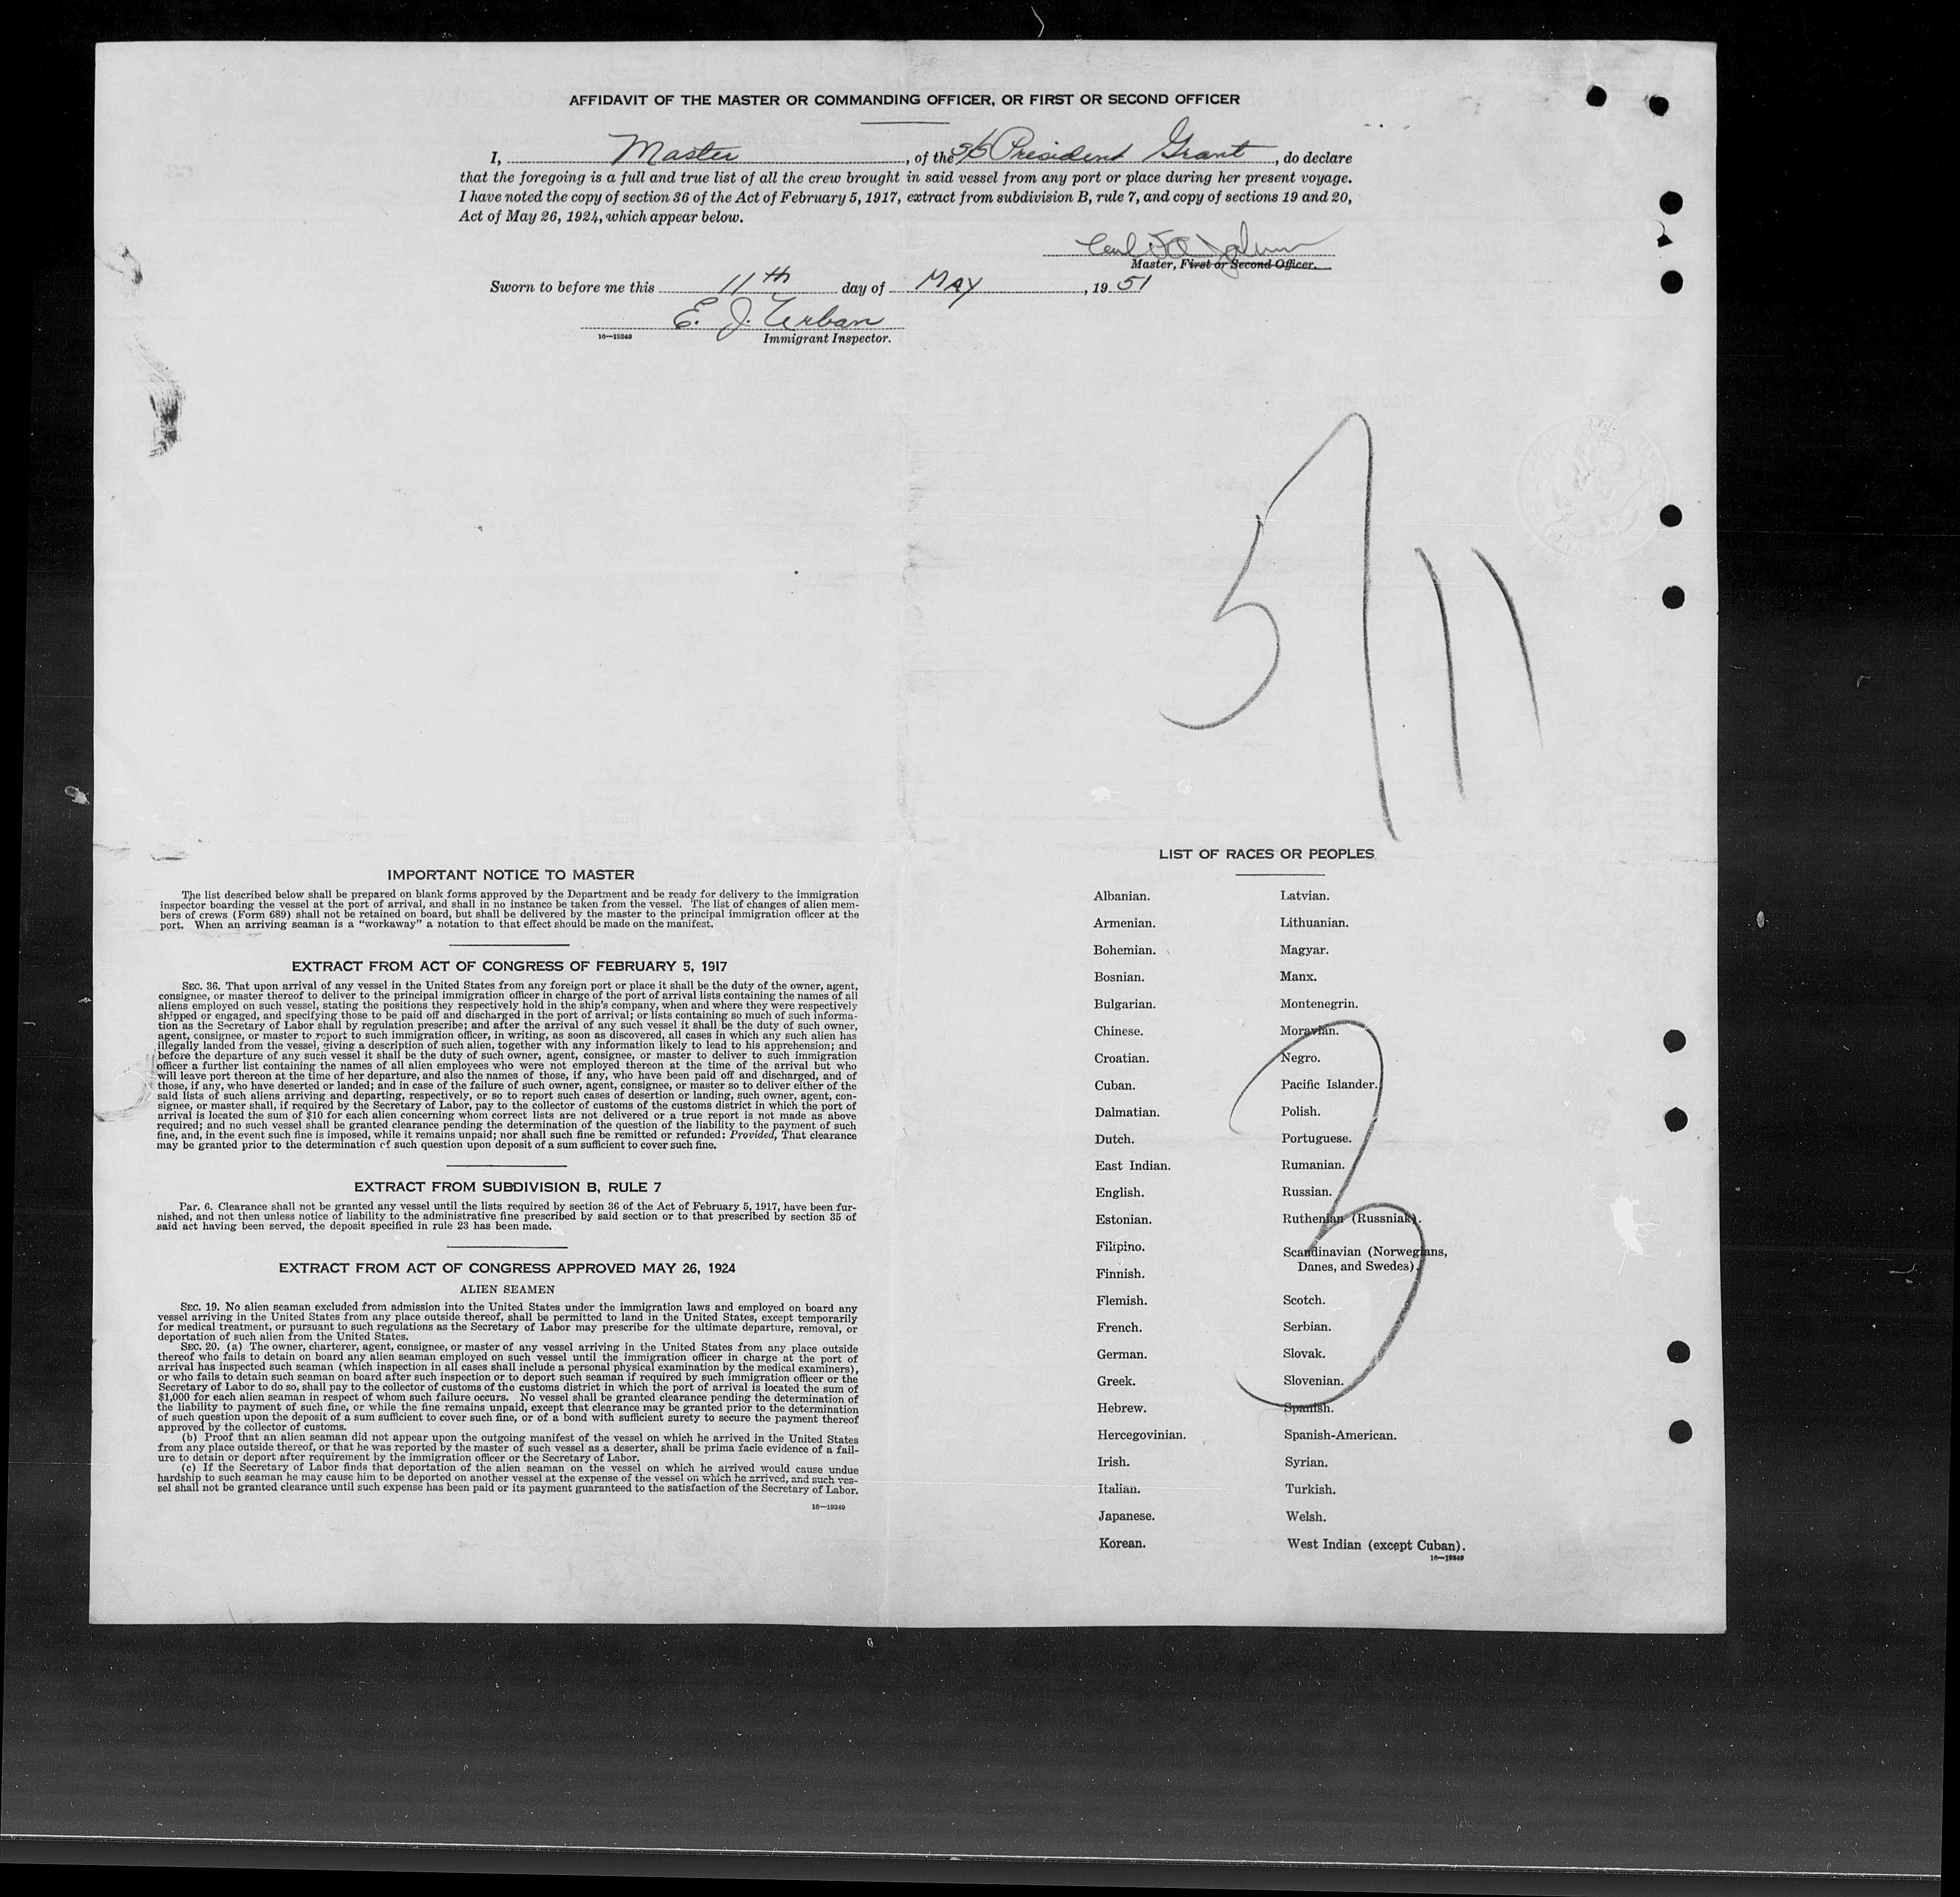 AFFIDAVIT OF THE MASTER OR COMMANDING OFFICER, OR FIRST OR SECOND OFFICER
I, Master, of the S/S President Grant, do declare
that the foregoing is a full and true list of all the crew brought in said vessel from any port or place during her present voyage.
I have noted the copy of section 36 of the Act of February 5, 1917, extract from subdivision B, rule 7, and copy of sections 19 and 20,
Act of May 26, 1924, which appear below.
Master, First or Second Officer.
Sworn to before me this 11th day of MAY, 1951
E. J. Urban
16—19349 Immigrant Inspector.
5/11
IMPORTANT NOTICE TO MASTER
The list described below shall be prepared on blank forms approved by the Department and be ready for delivery to the immigration
inspector boarding the vessel at the port of arrival, and shall in no instance be taken from the vessel. The list of changes of alien mem-
bers of crews (Form 689) shall not be retained on board, but shall be delivered by the master to the principal immigration officer at the
port. When an arriving seaman is a "workaway" a notation to that effect should be made on the manifest.
EXTRACT FROM ACT OF CONGRESS OF FEBRUARY 5, 1917
SEC. 36. That upon arrival of any vessel in the United States from any foreign port or place it shall be the duty of the owner, agent,
consignee, or master thereof to deliver to the principal immigration officer in charge of the port of arrival lists containing the names of all
aliens employed on such vessel, stating the positions they respectively hold in the ship's company, when and where they were respectively
shipped or engaged, and specifying those to be paid off and discharged in the port of arrival; or lists containing so much of such informa-
tion as the Secretary of Labor shall by regulation prescribe; and after the arrival of any such vessel it shall be the duty of such owner,
agent, consignee, or master to report to such immigration officer, in writing, as soon as discovered, all cases in which any such alien has
illegally landed from the vessel, giving a description of such alien, together with any information likely to lead to his apprehension; and
before the departure of any such vessel it shall be the duty of such owner, agent, consignee, or master to deliver to such immigration
officer a further list containing the names of all alien employees who were not employed thereon at the time of the arrival but who
will leave port thereon at the time of her departure, and also the names of those, if any, who have been paid off and discharged, and of
those, if any, who have deserted or landed; and in case of the failure of such owner, agent, consignee, or master so to deliver either of the
said lists of such aliens arriving and departing, respectively, or so to report such cases of desertion or landing, such owner, agent, con-
signee, or master shall, if required by the Secretary of Labor, pay to the collector of customs of the customs district in which the port of
arrival is located the sum of $10 for each alien concerning whom correct lists are not delivered or a true report is not made as above
required; and no such vessel shall be granted clearance pending the determination of the question of the liability to the payment of such
fine, and, in the event such fine is imposed, while it remains unpaid; nor shall such fine be remitted or refunded: Provided, That clearance
may be granted prior to the determination of such question upon deposit of a sum sufficient to cover such fine.
EXTRACT FROM SUBDIVISION B, RULE 7
Par. 6. Clearance shall not be granted any vessel until the lists required by section 36 of the Act of February 5, 1917, have been fur-
nished, and not then unless notice of liability to the administrative fine prescribed by said section or to that prescribed by section 35 of
said act having been served, the deposit specified in rule 23 has been made.
EXTRACT FROM ACT OF CONGRESS APPROVED MAY 26, 1924
ALIEN SEAMEN
SEC. 19. No alien seaman excluded from admission into the United States under the immigration laws and employed on board any
vessel arriving in the United States from any place outside thereof, shall be permitted to land in the United States, except temporarily
for medical treatment, or pursuant to such regulations as the Secretary of Labor may prescribe for the ultimate departure, removal, or
deportation of such alien from the United States.
SEC. 20. (a) The owner, charterer, agent, consignee, or master of any vessel arriving in the United States from any place outside
thereof who fails to detain on board any alien seaman employed on such vessel until the immigration officer in charge at the port of
arrival has inspected such seaman (which inspection in all cases shall include a personal physical examination by the medical examiners),
or who fails to detain such seaman on board after such inspection or to deport such seaman if required by such immigration officer or the
Secretary of Labor to do so, shall pay to the collector of customs of the customs district in which the port of arrival is located the sum of
$1,000 for each alien seaman in respect of whom such failure occurs. No vessel shall be granted clearance pending the determination of
the liability to payment of such fine, or while the fine remains unpaid, except that clearance may be granted prior to the determination
of such question upon the deposit of a sum sufficient to cover such fine, or of a bond with sufficient surety to secure the payment thereof
approved by the collector of customs.
(b) Proof that an alien seaman did not appear upon the outgoing manifest of the vessel on which he arrived in the United States
from any place outside thereof, or that he was reported by the master of such vessel as a deserter, shall be prima facie evidence of a fail-
ure to detain or deport after requirement by the immigration officer or the Secretary of Labor.
(c) If the Secretary of Labor finds that deportation of the alien seaman on the vessel on which he arrived would cause undue
hardship to such seaman he may cause him to be deported on another vessel at the expense of the vessel on which he arrived, and such ves-
sel shall not be granted clearance until such expense has been paid or its payment guaranteed to the satisfaction of the Secretary of Labor.
16—19349
LIST OF RACES OR PEOPLES
Albanian.
Armenian.
Bohemian.
Bosnian.
Bulgarian.
Chinese.
Croatian.
Cuban.
Dalmatian.
Dutch.
East Indian.
English.
Estonian.
Filipino.
Finnish.
Flemish.
French.
German.
Greek.
Hebrew.
Hercegovinian.
Irish.
Italian.
Japanese.
Korean.
Latvian.
Lithuanian.
Magyar.
Manx.
Montenegrin.
Moravian.
Negro.
Pacific Islander.
Polish.
Portuguese.
Rumanian.
Russian.
Ruthenian (Russniak).
Scandinavian (Norwegians,
Danes, and Swedes).
Scotch.
Serbian.
Slovak.
Slovenian.
Spanish.
Spanish-American.
Syrian.
Turkish.
Welsh.
West Indian (except Cuban).
16—19349
3